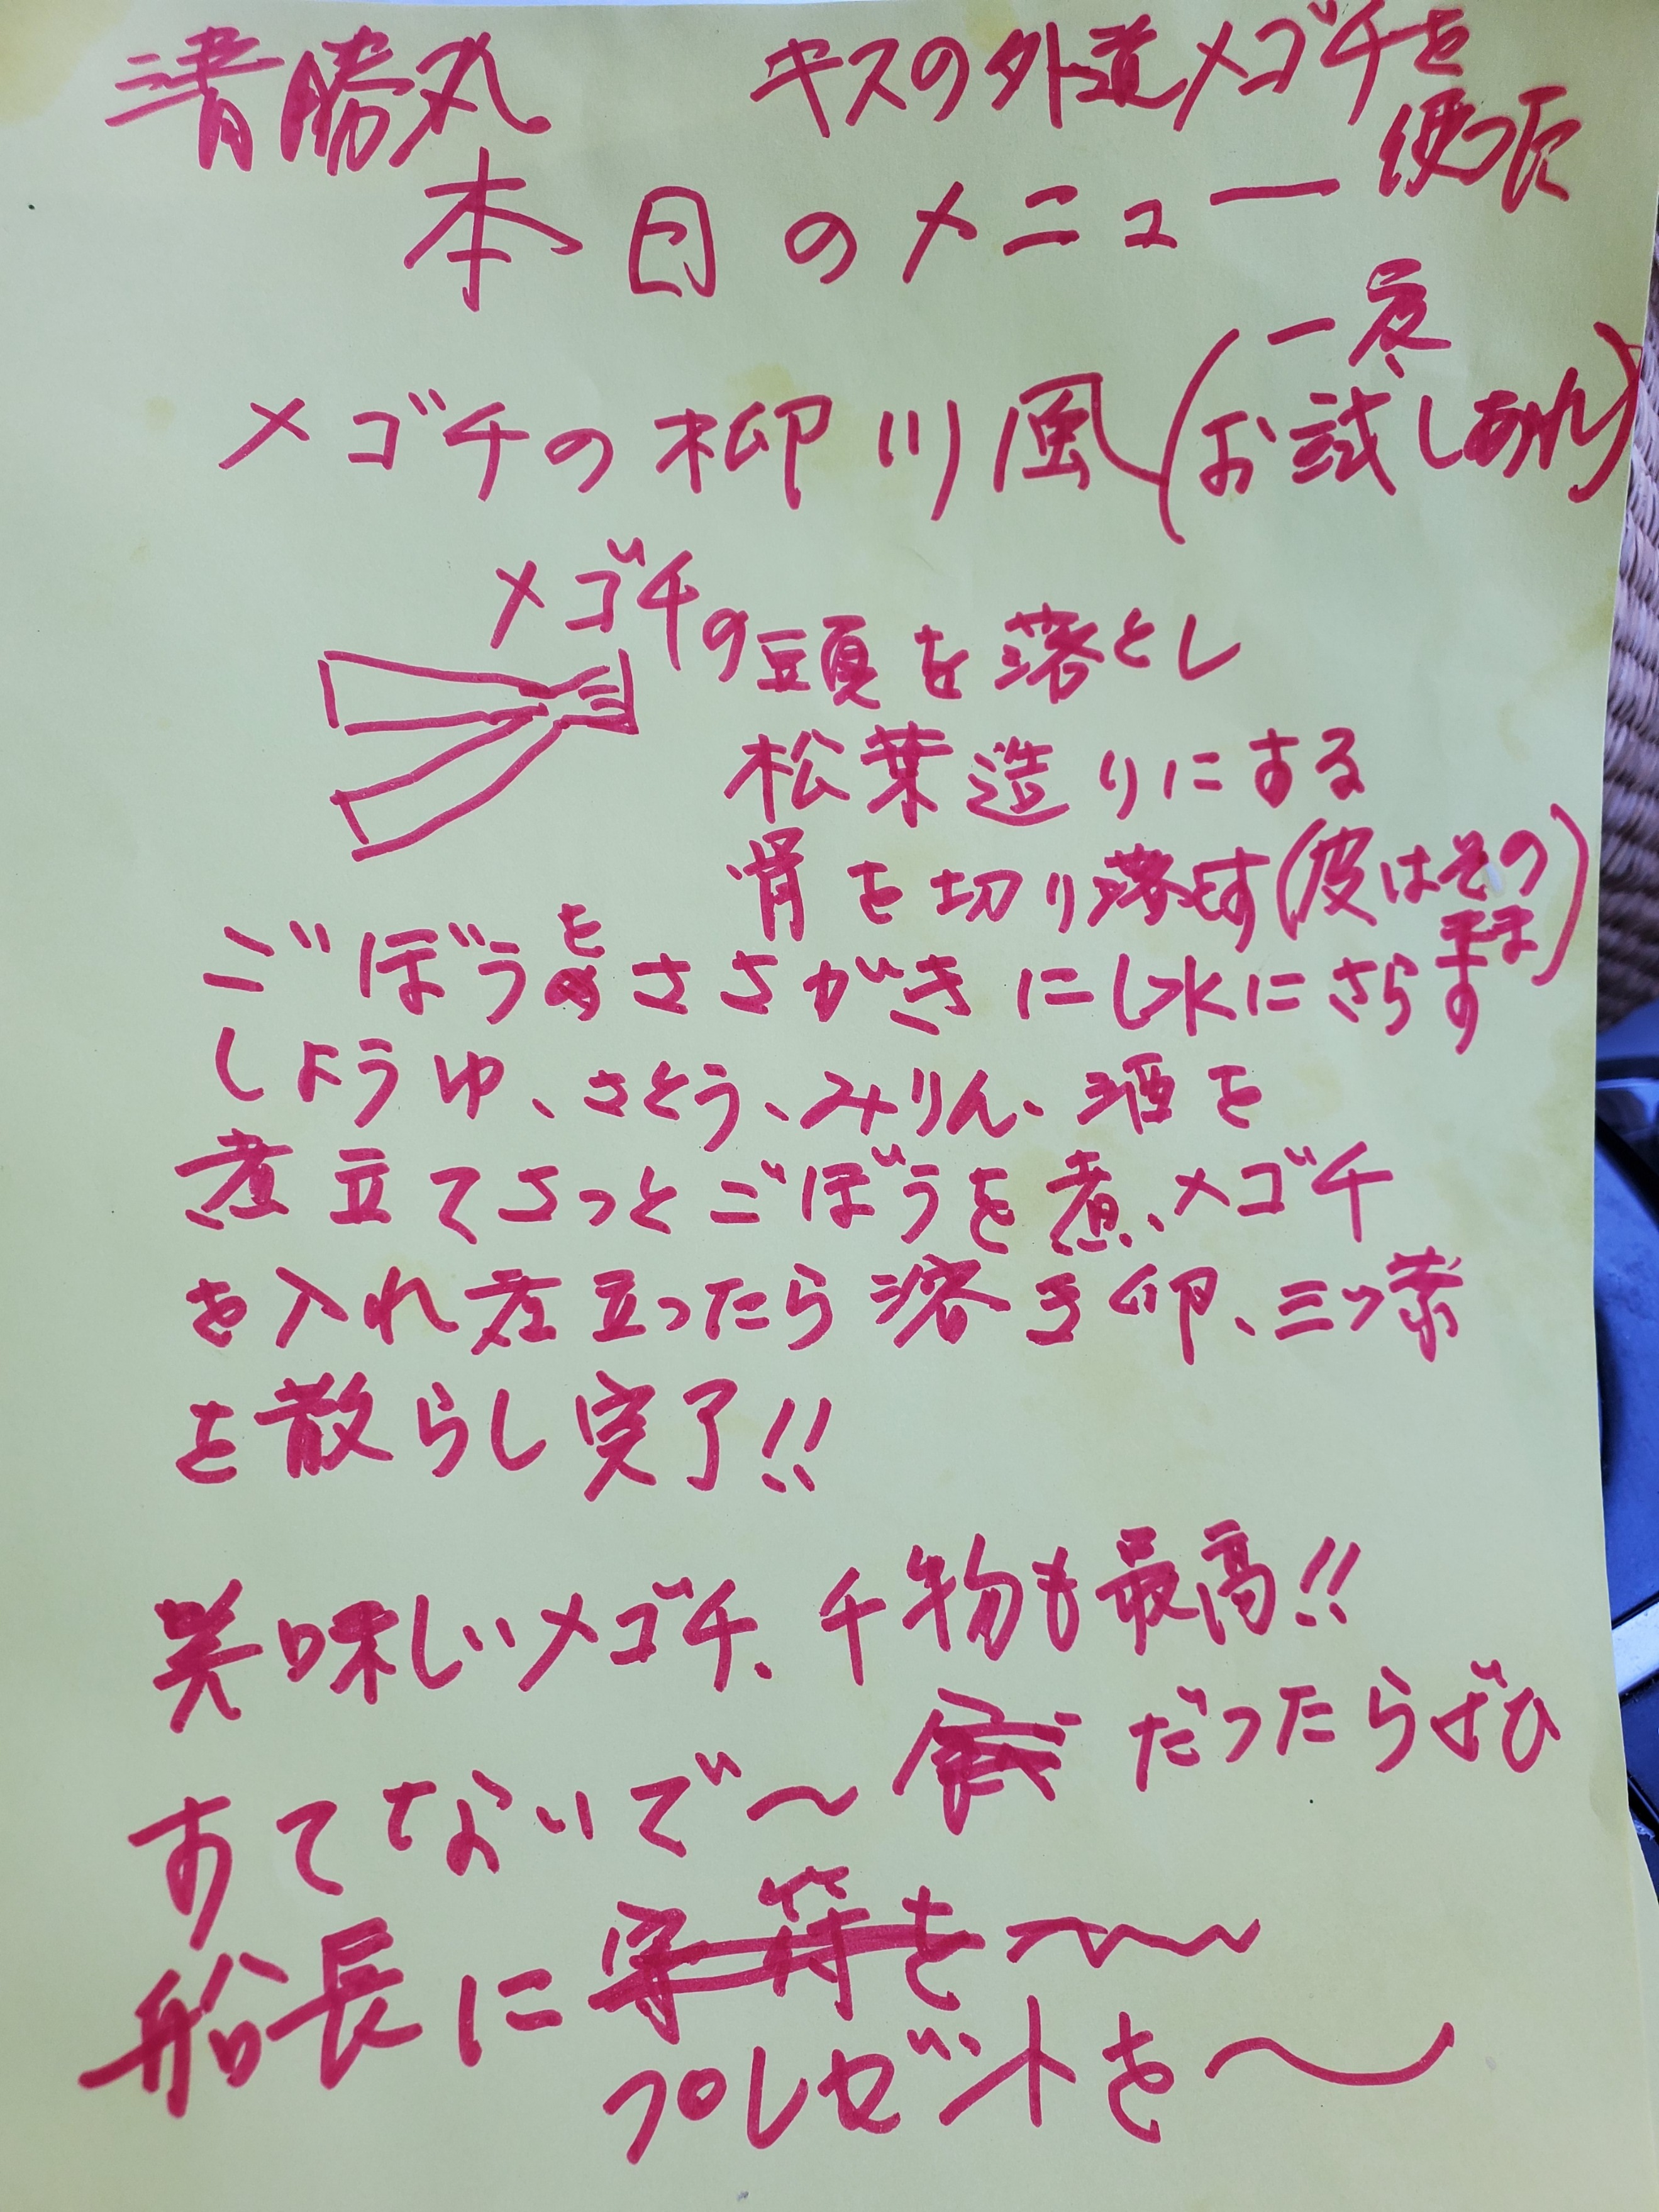 清勝丸 キスの外道メゴチを
使った
本日のメニュー
一度
メゴチの柳川風(お試しあれ)
メゴチの頭を落とし
松葉造りにする
骨を切り落す(皮はその
まま)
ごぼうをささがきにし水にさらす
しょうゆ、さとう、みりん、酒を
煮立てさっとごぼうを煮、メゴチ
を入れ煮立ったら溶き卵、三ッ葉
を散らし完了!!
美味しいメゴチ、干物も最高!!
すてないで〜 だったらぜひ
船長に
プレゼントを〜